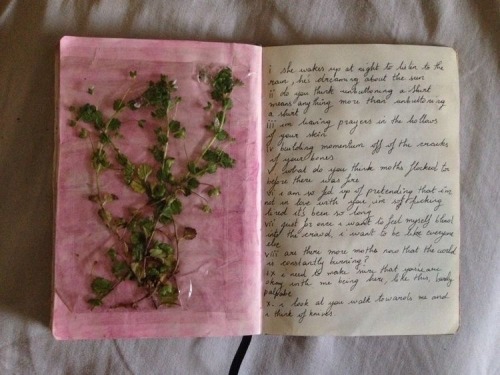 i she wakes up at night to listen to the
rain, he's dreaming about the sun
ii do you think unbuttoning a shirt
means anything more than unbuttoning
a shirt
iii im leaving prayers in the hollows
of your skin
iv building momentum off of the cracks
of your bones
v what do you think moths flocked to
before there was fire
vi i am so fed up of pretending that i'm
not in love with you im soft fucking
tired it's been so long
vii just for once i want to feel myself blend
into the crowd, i want to be like everyone
else
viii are there more moths now that the world
is constantly burning?
ix i need to make sure that you're
okay with me being here, like this, barely
palpable
x. i look at you walk towards me and
i think of knives.